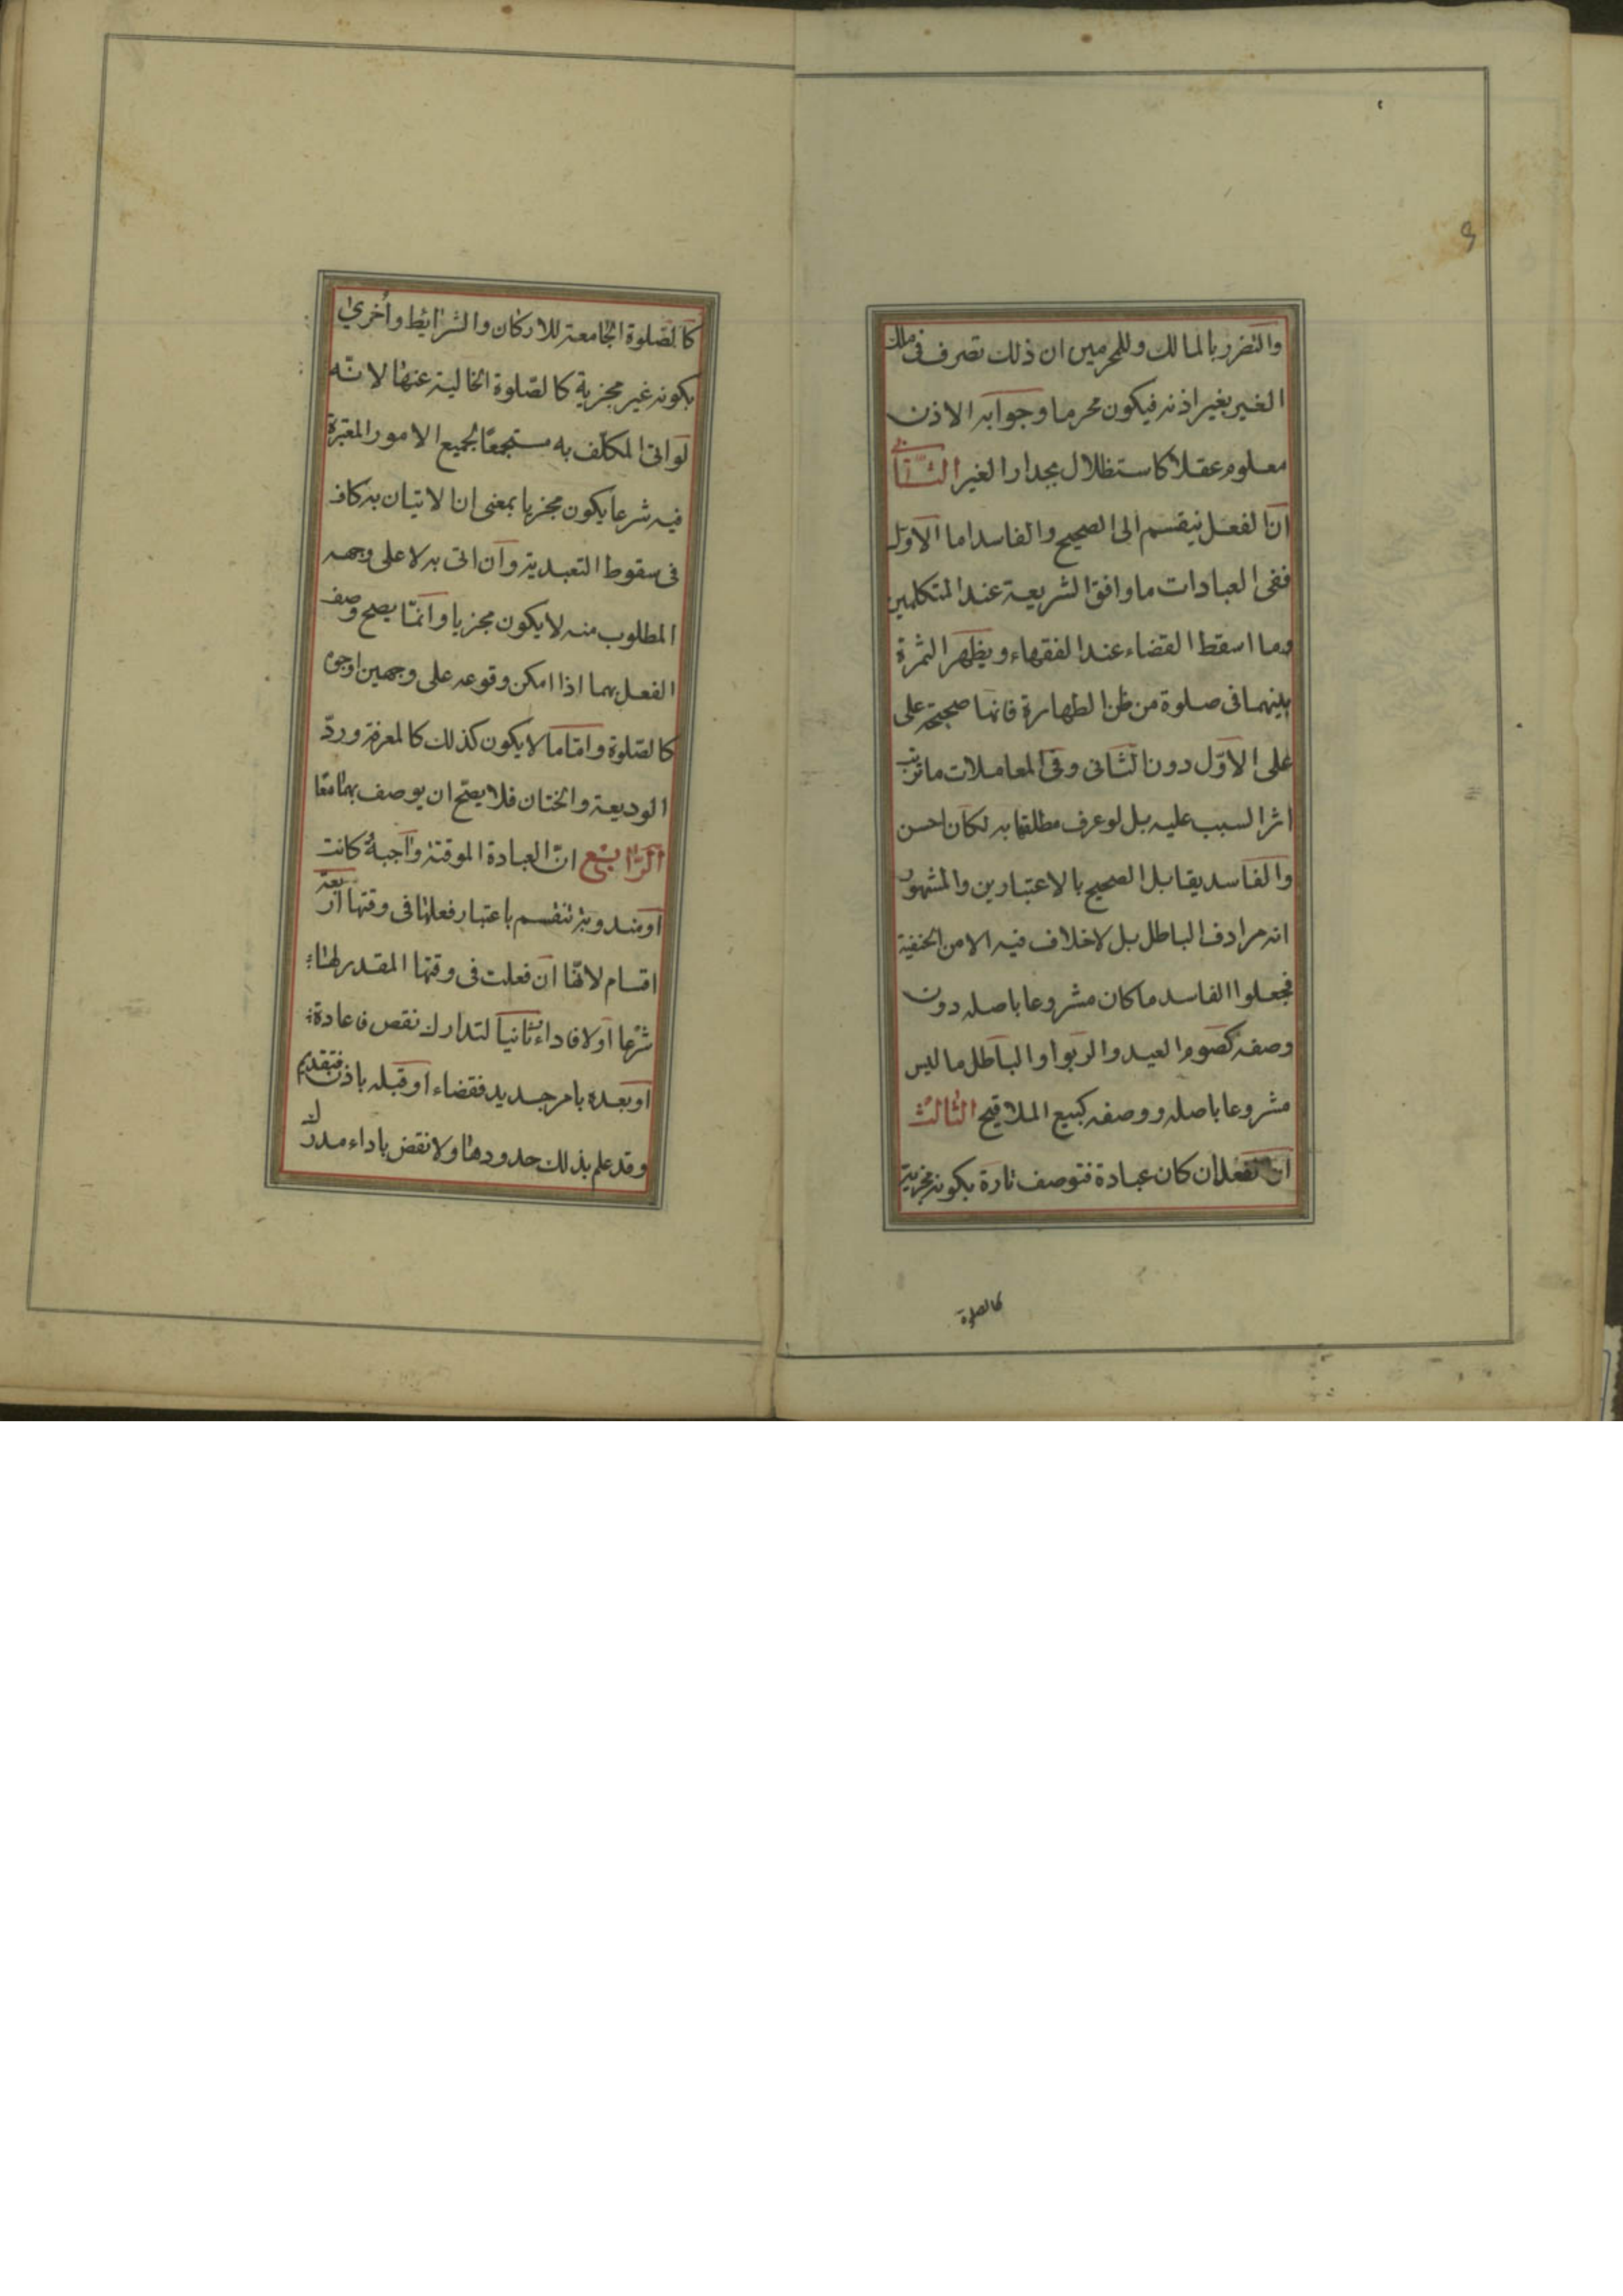 والتضرر بالمالك وللمحرمين ان ذلك تصرف فى ملك
الغير بغير اذنه فيكون محرما وجوابه الاذن
معلوم عقلا كاستظلال بجدار الغير الثانى
ان الفعل ينقسم الى الصحيح والفاسد اما الاوّل
ففى العبادات ما وافق الشريعة عند المتكلمين
وما اسقط القضاء عند الفقهاء ويظهر الثمرة
بينهما فى صلوة من ظن الطهارة فانها صحيحة على
على الاوّل دون الثانى وفى المعاملات ما ترتب
اثر السبب عليه بل لو عرف مطلقها به لكان احسن
والفاسد يقابل الصحيح بالاعتبارين والمشهور
انه مرادف الباطل بل لا خلاف فيه الا من الحنفية
فجعلوا الفاسد ما كان مشروعا باصله دون
وصفه كصوم العيد والربوا والباطل ما ليس
مشروعا باصله ووصفه كبيع الملاقيح الثالث
ان الفعل ان كان عبادة فتوصف تارة بكونه مجزية
كالصلوة
كالصّلوة الجامعة للاركان والشرايط واُخرىٰ
بكونه غير مجزية كالصّلوة الخالية عنها لانّه
لو اتى المكلّف به مستجمعًا لجميع الامور المعتبرة
فيه شرعا يكون مجزيا بمعنى ان الاتيان به كاف
فى سقوط التعبدية وان اتى به لا على وجهه
المطلوب منه لا يكون مجزيا وانّما يصح وصف
الفعل بهما اذا امكن وقوعه على وجهين او جوه
كالصّلوة وامّا ما لا يكون كذلك كالمعرفة وردّ
الوديعة والختان فلا يصّح ان يوصف بهما معًا
الرّابع انّ العبادة الموقتة واجبةً كانت
او مندوبة تنقسم باعتبار فعلها فى وقتها اربعة
اقسام لانّها ان فعلت فى وقتها المقدر لها
شرعا اولا فاداء وثانيا لتدارك نقص فاعادة
او بعده بامر جديد فقضاء او قبله باذن فتقديم
وقد علم بذلك حدودها ولا نقض باداء مدرك